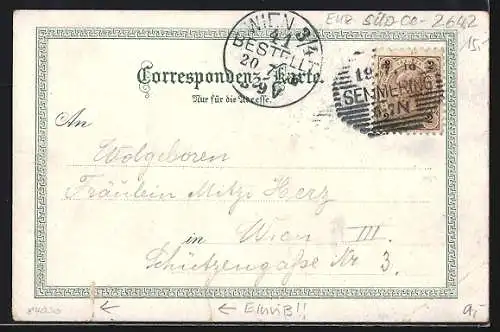 Eur SÜD-00-2642
15,-
WIEN 3/4
BESTELLT
20
Correspondenz-Karte.
Nur für die Adresse.
SEMMERING
2 2
An
Wolgeboren
Fräulein Mitzi Herz
in Wien III.
Schützengaße Nr 3.
← ← Einriß!!
9,-